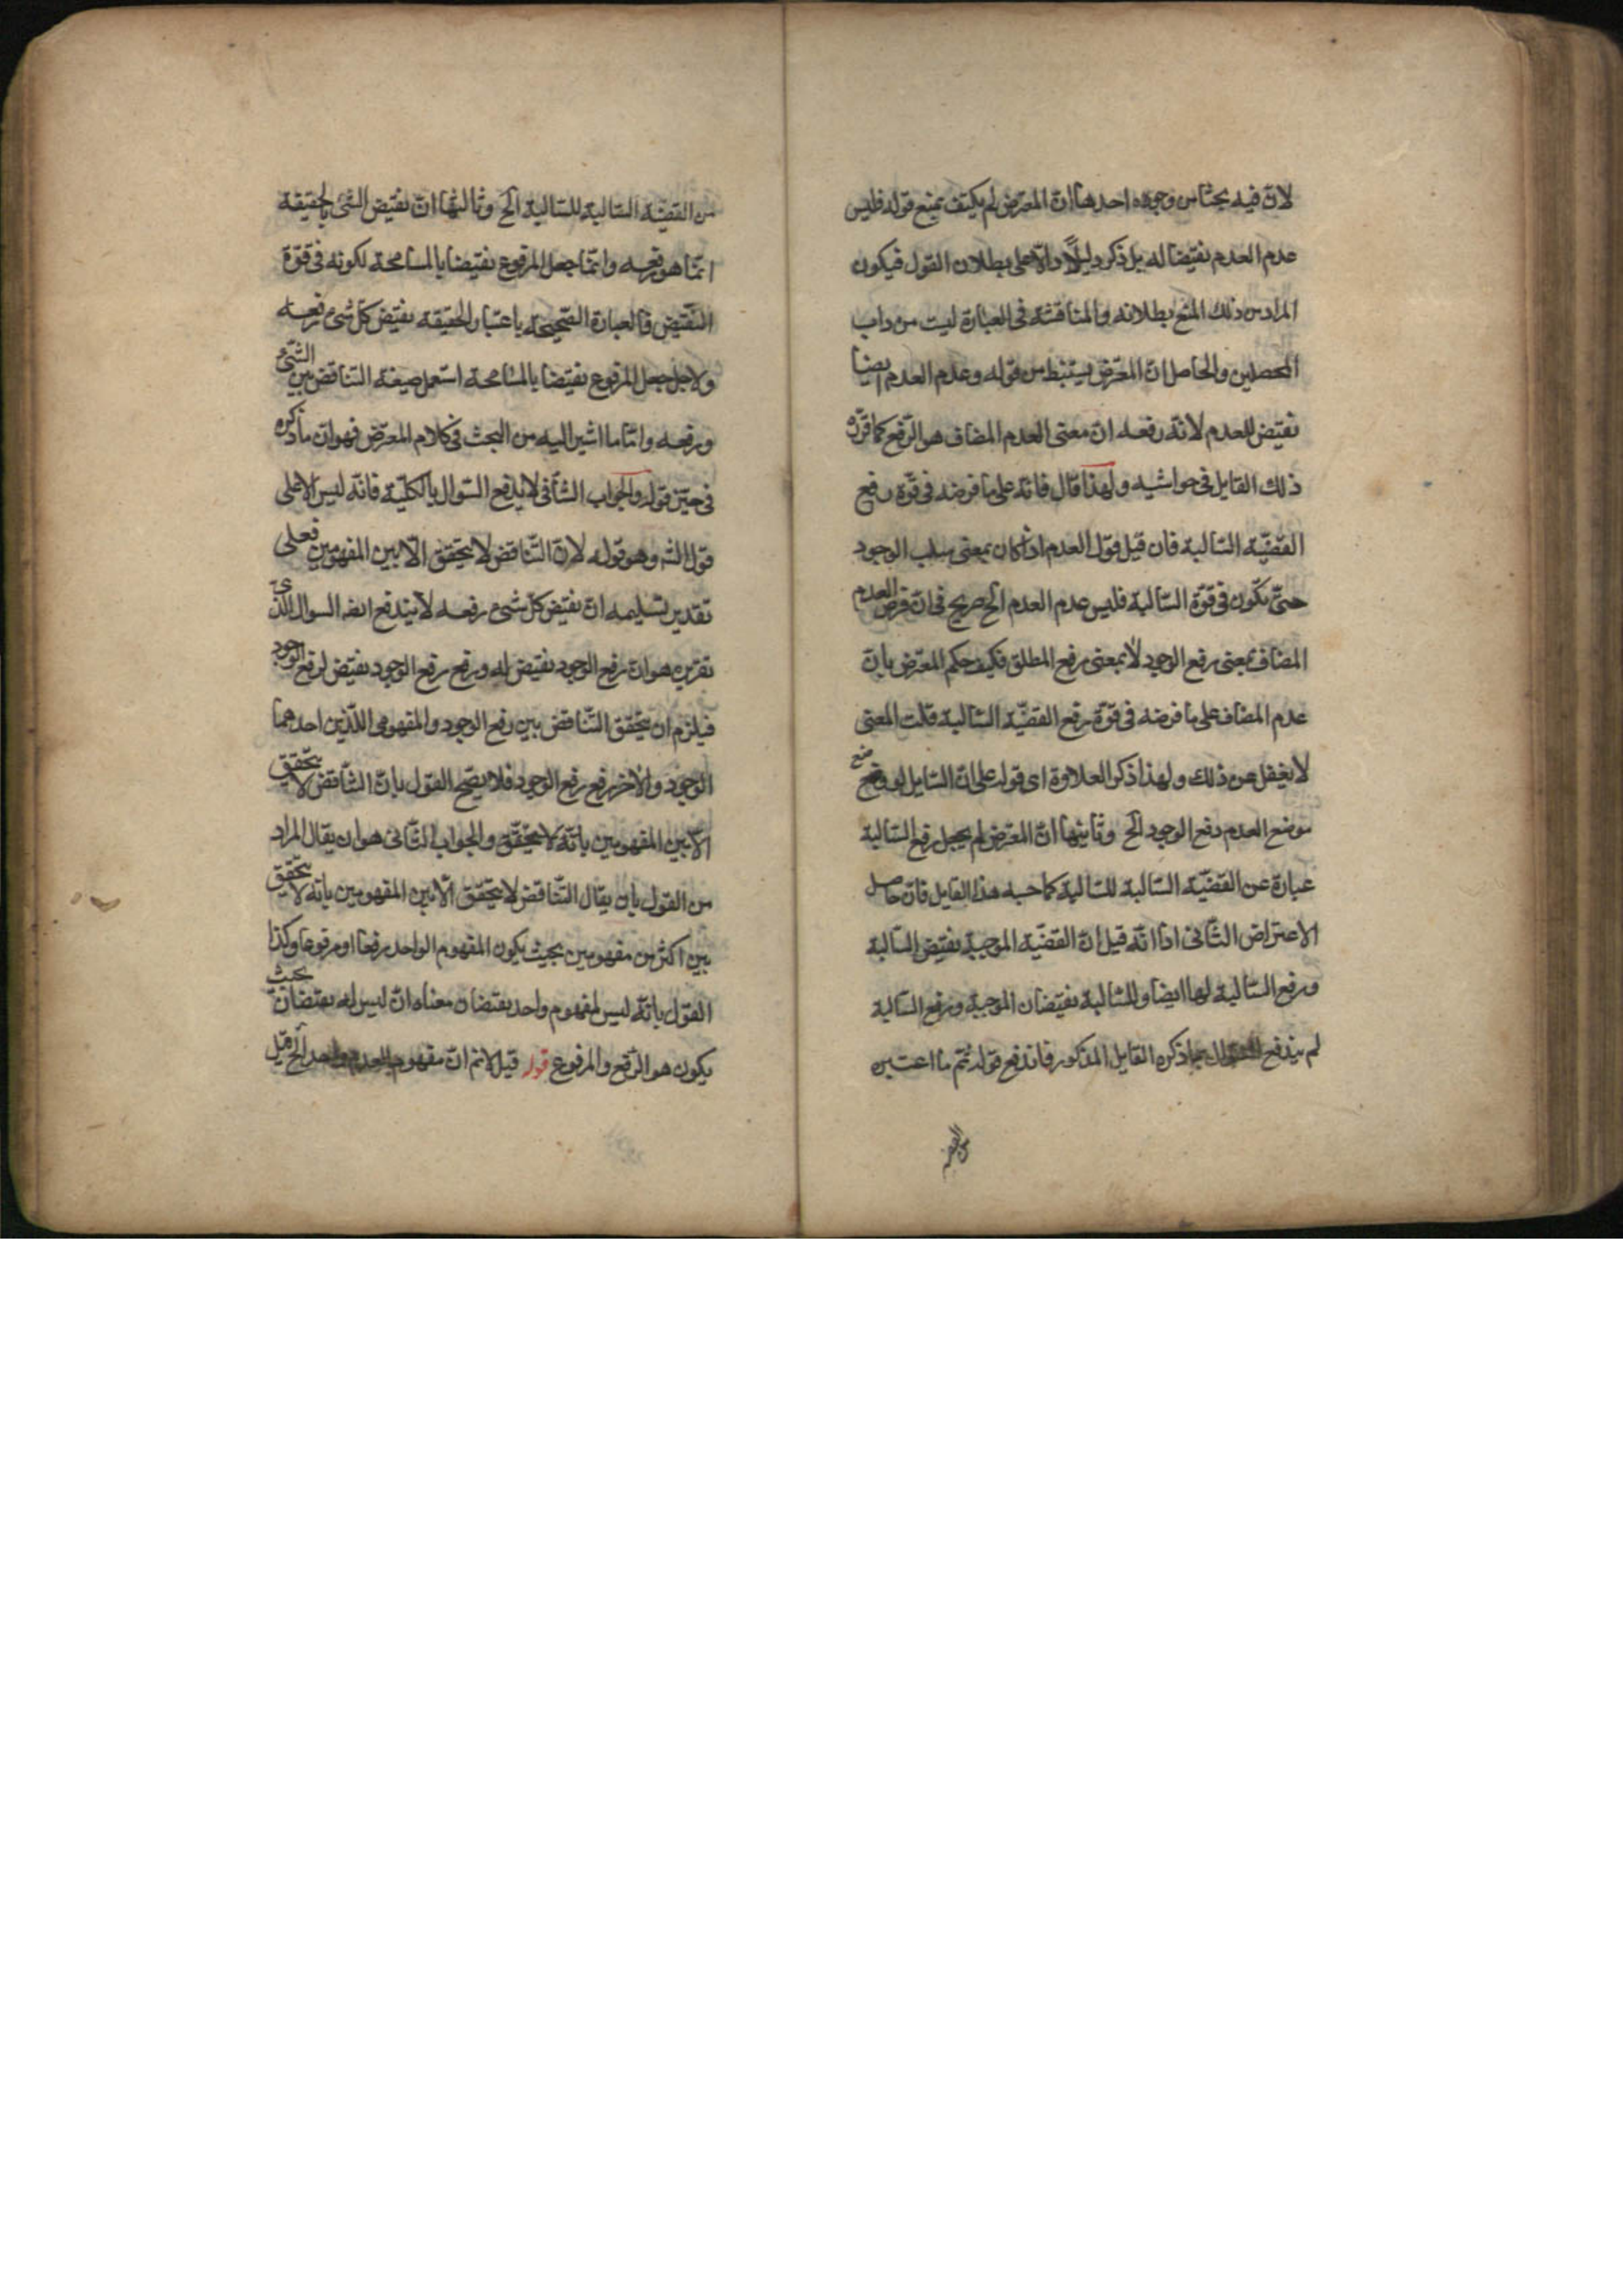 لان فيه بحثا من وجوه احدها ان المعترض لم يكتف بمنع قوله فليس
عدم العدم نقيضا له بل ذكر دليلا دالا على بطلان القول فيكون
المراد من ذلك المنع بطلانه والمناقشة فى العبارة ليت من داب
المحصلين والحاصل ان المعترض يستنبط من قوله وعدم العدم ايضا
نقيض للعدم لانه رفعه ان معنى العدم المضاف هو الرفع كما قرره
ذلك القايل فى حواشيه ولهذا قال فانه على ما فرضه فى قوة رفع
القضية السالبة فان قيل قول العدم اذا كان بمعنى سلب الوجود
حتى يكون فى قوة السالبة فليس عدم العدم الخ صريح فى ان فرض العدم
المضاف بمعنى رفع الوجود لا بمعنى رفع المطلق فكيف حكم المعترض بان
عدم المضاف على ما فرضه فى قوة رفع القضية السالبة قلت المعنى
لا يغفل عن ذلك ولهذا ذكر العلاوة اى قوله على ان السايل لو وضع
موضع العدم رفع الوجود الخ وثانيها ان المعترض لم يجعل رفع السالبة
عبارة عن القضية السالبة للسالبة كما حسبه هذا القايل فان حاصل
الاعتراض الثانى اذا انه قيل ان القضية الموجبة نقيض السالبة
ورفع السالبة لها ايضا وللسالبة نقيضان الموجبة ورفع السالبة
لم يندفع السوال بما ذكره القايل المذكور فاندفع قوله ثم ما اعتبره
من القضية
من القضية السالبة للسالبة الخ وثالثها ان نقيض الشئ بالحقيقة
انما هو رفعه وانما جعل المرفوع نقيضا بالمسامحة لكونه فى قوة
النقيض فالعبارة الصحيحة باعتبار الحقيقة نقيض كل شئ رفعه
ولاجل جعل المرفوع نقيضا بالمسامحة استعمل صيغة التناقض بين الشئ
ورفعه واما ما اشير اليه من البحث فى كلام المعترض فهو ان ما ذكره
فى حيز قوله والجواب الشافى لا يدفع السوال بالكلية فانه ليس الا على
قول الشـ وهو قوله لان التناقض لا يتحقق الا بين المفهومين فعلى
تقدير تسليمه ان نقيض كل شئ رفعه لا يندفع ايضـ السوال الذى
تقريره هو ان رفع الوجود نقيض له ورفع رفع الوجود نقيض لرفع الوجود
فيلزم ان يتحقق التناقض بين رفع الوجود والمفهومى اللذين احدهما
الوجود والاخر رفع رفع الوجود فلا يصح القول بان التناقض لا يتحقق
الا بين المفهومين بانه لا يتحقق والجواب الثانى هو ان يقال المراد
من القول بان يقال التناقض لا يتحقق الا بين المفهومين بانه لا يتحقق
بين اكثر من مفهومين بحيث يكون المفهوم الواحد رفعا او مرفوعا وكذا
القول بانه ليس لمفهوم واحد نقيضان معناه ان ليس له نقيضان بحيث
يكون هو الرفع والمرفوع قوله قيل لا نم ان مفهوم العدم واحد الخ قيل